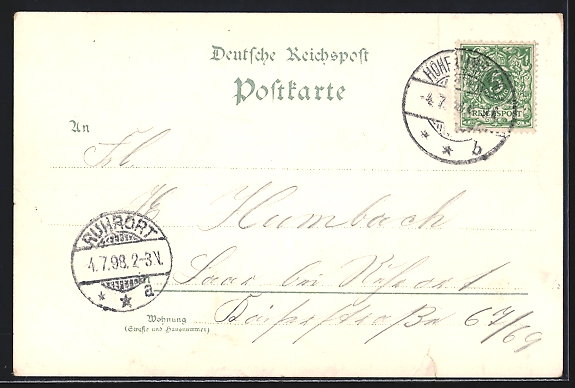 Deutsche Reichspost
Postkarte
HOHE
-4.7.
b
5
REICHSPOST
An
Frl.
H Humbach
RUHRORT
4.7.98. 2-3N.
a
Laar bei Ruhrort
Wohnung
(Straße und Hausnummer)
Kaiserstraße 67/69